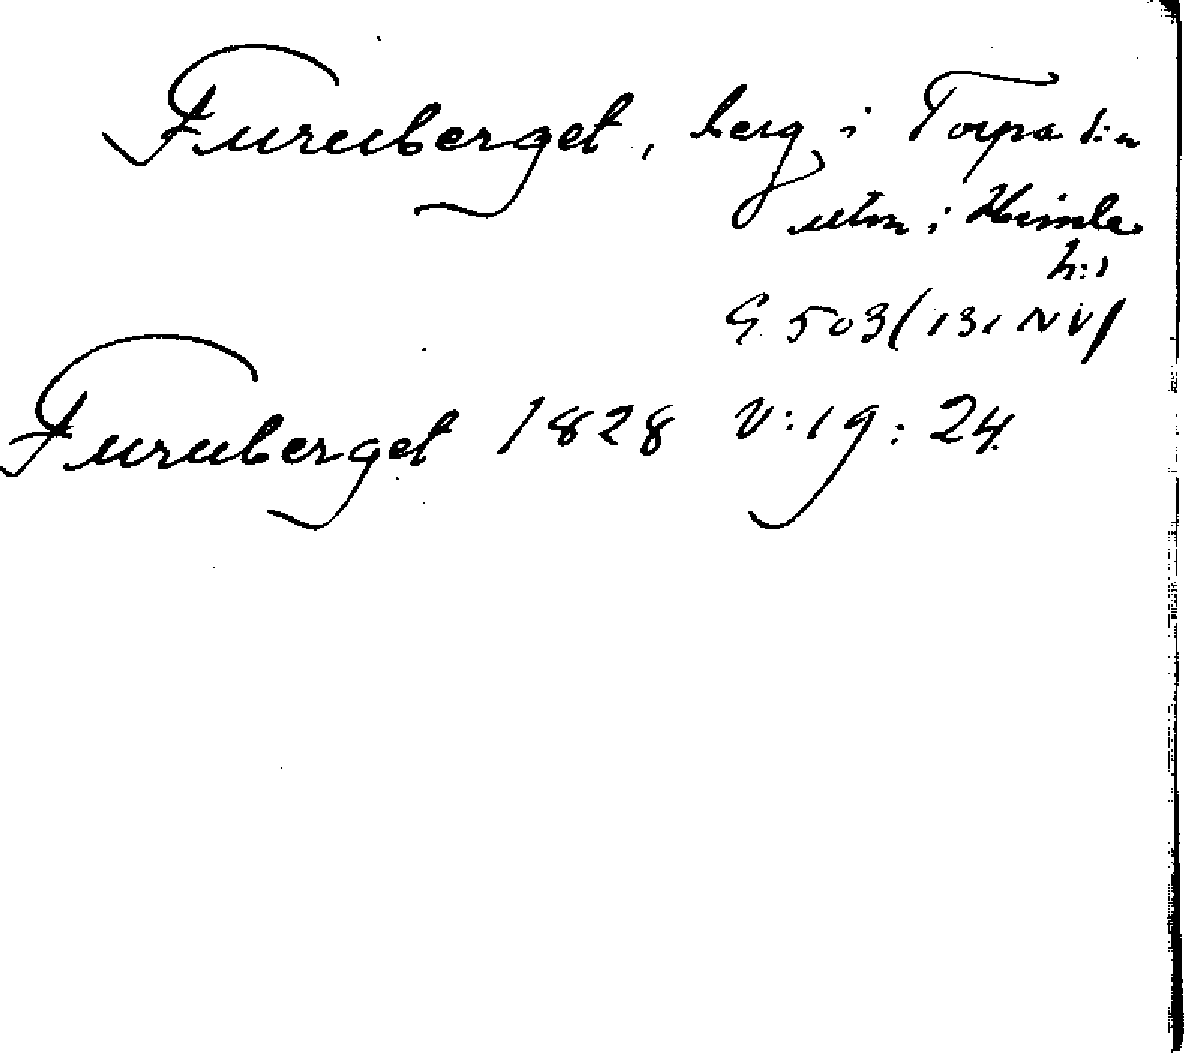 Furuberget, berg i Torpa s:n
utm. i Himle
h:d
G. 503 (131 NV)
Furuberget 1828 V:19:24.